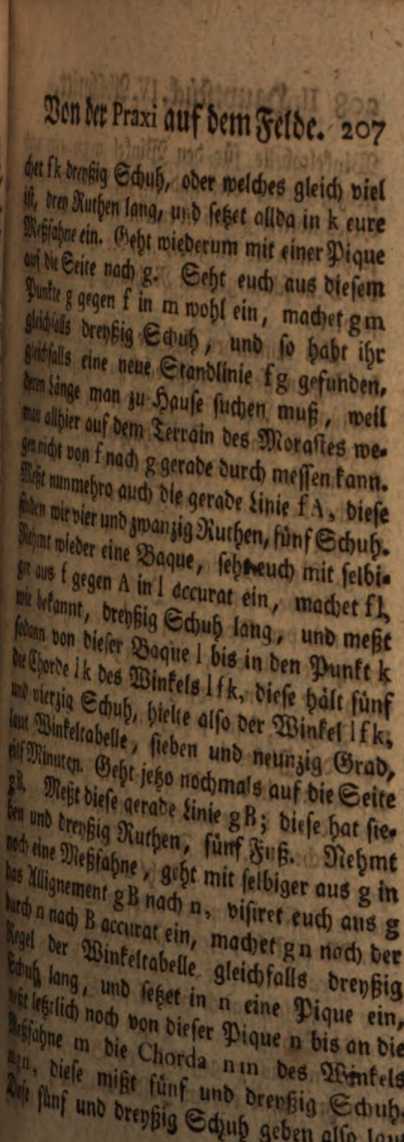 Von der Praxi auf dem Felde. 207
chet f k dreyßig Schuh, oder welches gleich viel
ist, drey Ruthen lang, und setzet allda in k eure
Meßfahne ein. Geht wiederum mit einer Pique
auf die Seite nach g. Seht euch aus diesem
Punkte g gegen f in m wohl ein, machet g m
gleichfalls dreyßig Schuh, und so habt ihr
gleichfalls eine neue Standlinie f g gefunden,
deren Länge man zu Hause suchen muß, weil
man allhier auf dem Terrain des Morastes we-
gen nicht von f nach g gerade durch messen kann.
Meßt nunmehro auch die gerade Linie f A, diese
finden wir vier und zwanzig Ruthen, fünf Schuh.
Nehmt wieder eine Baque, seht euch mit selbi-
ger aus f gegen A in l accurat ein, machet f l,
wie bekannt, dreyßig Schuh lang, und meßt
sodann von dieser Baque l bis in den Punkt k
die Chorde l k des Winkels l f k, diese hält fünf
und vierzig Schuh, hielte also der Winkel l f k,
laut Winkeltabelle, sieben und neunzig Grad,
eilf Minuten. Geht jetzo nochmals auf die Seite
g B. Meßt diese gerade Linie g B; diese hat sie-
ben und dreyßig Ruthen, fünf Fuß. Nehmt
noch eine Meßfahne, geht mit selbiger aus g in
das Allignement g B nach n, visiret euch aus g
durch n nach B accurat ein, machet g n nach der
Regel der Winkeltabelle gleichfalls dreyßig
Schuh lang, und setzet in n eine Pique ein,
meßt letzlich noch von dieser Pique n bis an die
Meßfahne m die Chorda n m des Winkels
diese mißt fünf und dreyßig Schuh.
Diese fünf und dreyßig Schuh geben also laut